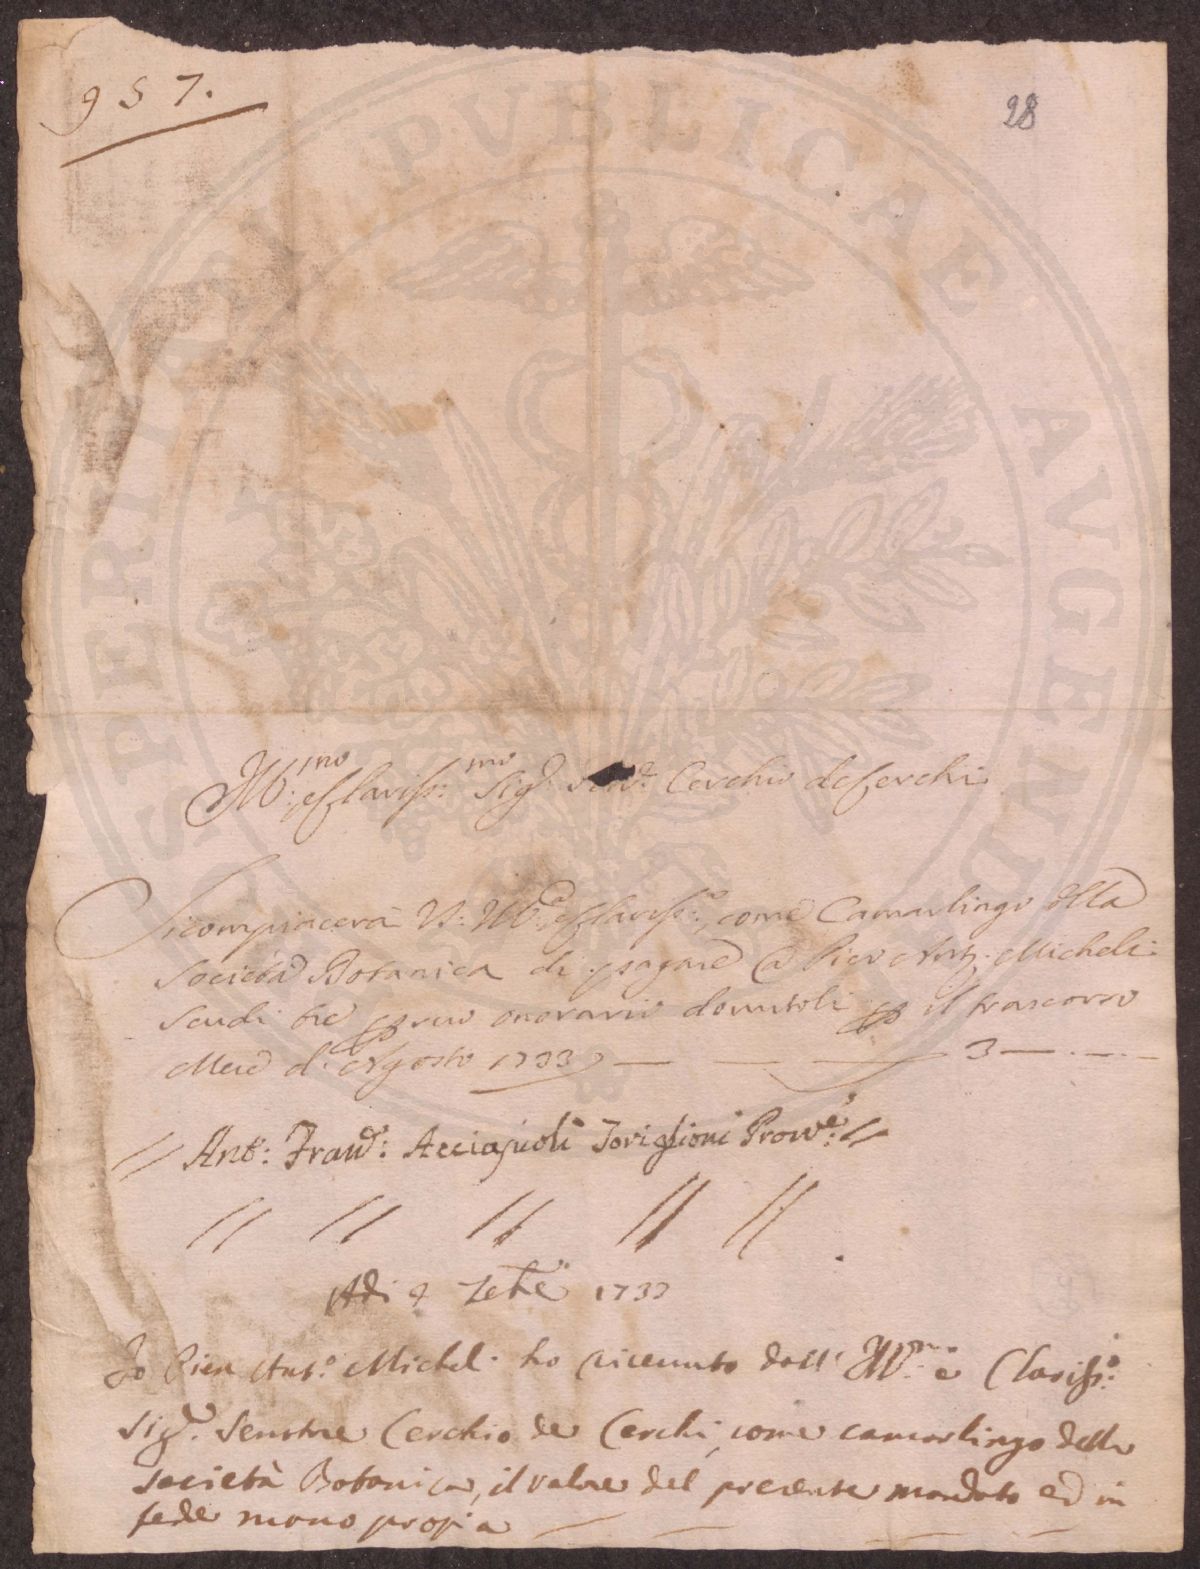 957.
28
Ill:mo e Clariss:mo Sig.r Sen.re Cerchio de Cerchi
Si compiacerà V: Ill:a e Clariss:a, come Camarlingo della
Società Botanica di pagare a Pier Ant.o Micheli
scudi tre per suo onorario dovutoli per il trascorso
Mese d'Agosto 1733 — — — 3 — . — . —
// Ant.o: Fran.co: Acciajuoli Toriglioni Provv.re: //
// // // // //
Adi 9 7bre 1733
Io Pier Ant.o Micheli ho ricevuto dall' Ill.mo e Clariss.o
Sig.r Senatore Cerchio de Cerchi, come camarlingo della
società Botanica, il valore del presente mandato ed in
fede mano propia
PROSPERITATI PVBLICAE AVGENDAE